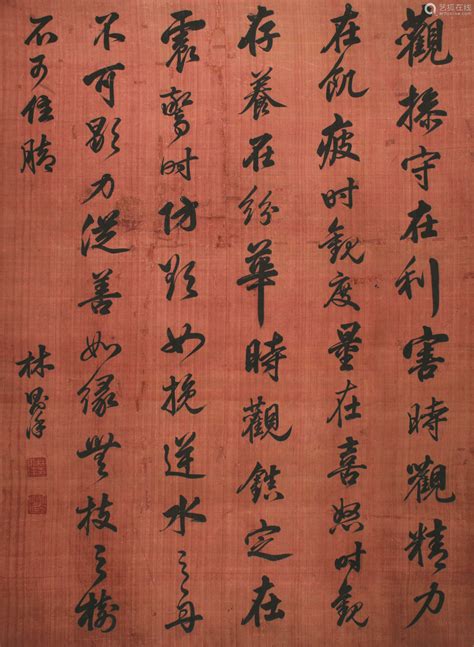 觀操守在利害時觀精力
在飢疲时觀度量在喜怒时觀
存養在紛華時觀鎮定在
震驚时防欲如挽逆水之舟
不可歇力從善如緣無枝之樹
不可住脚
林則徐
艺狐在线